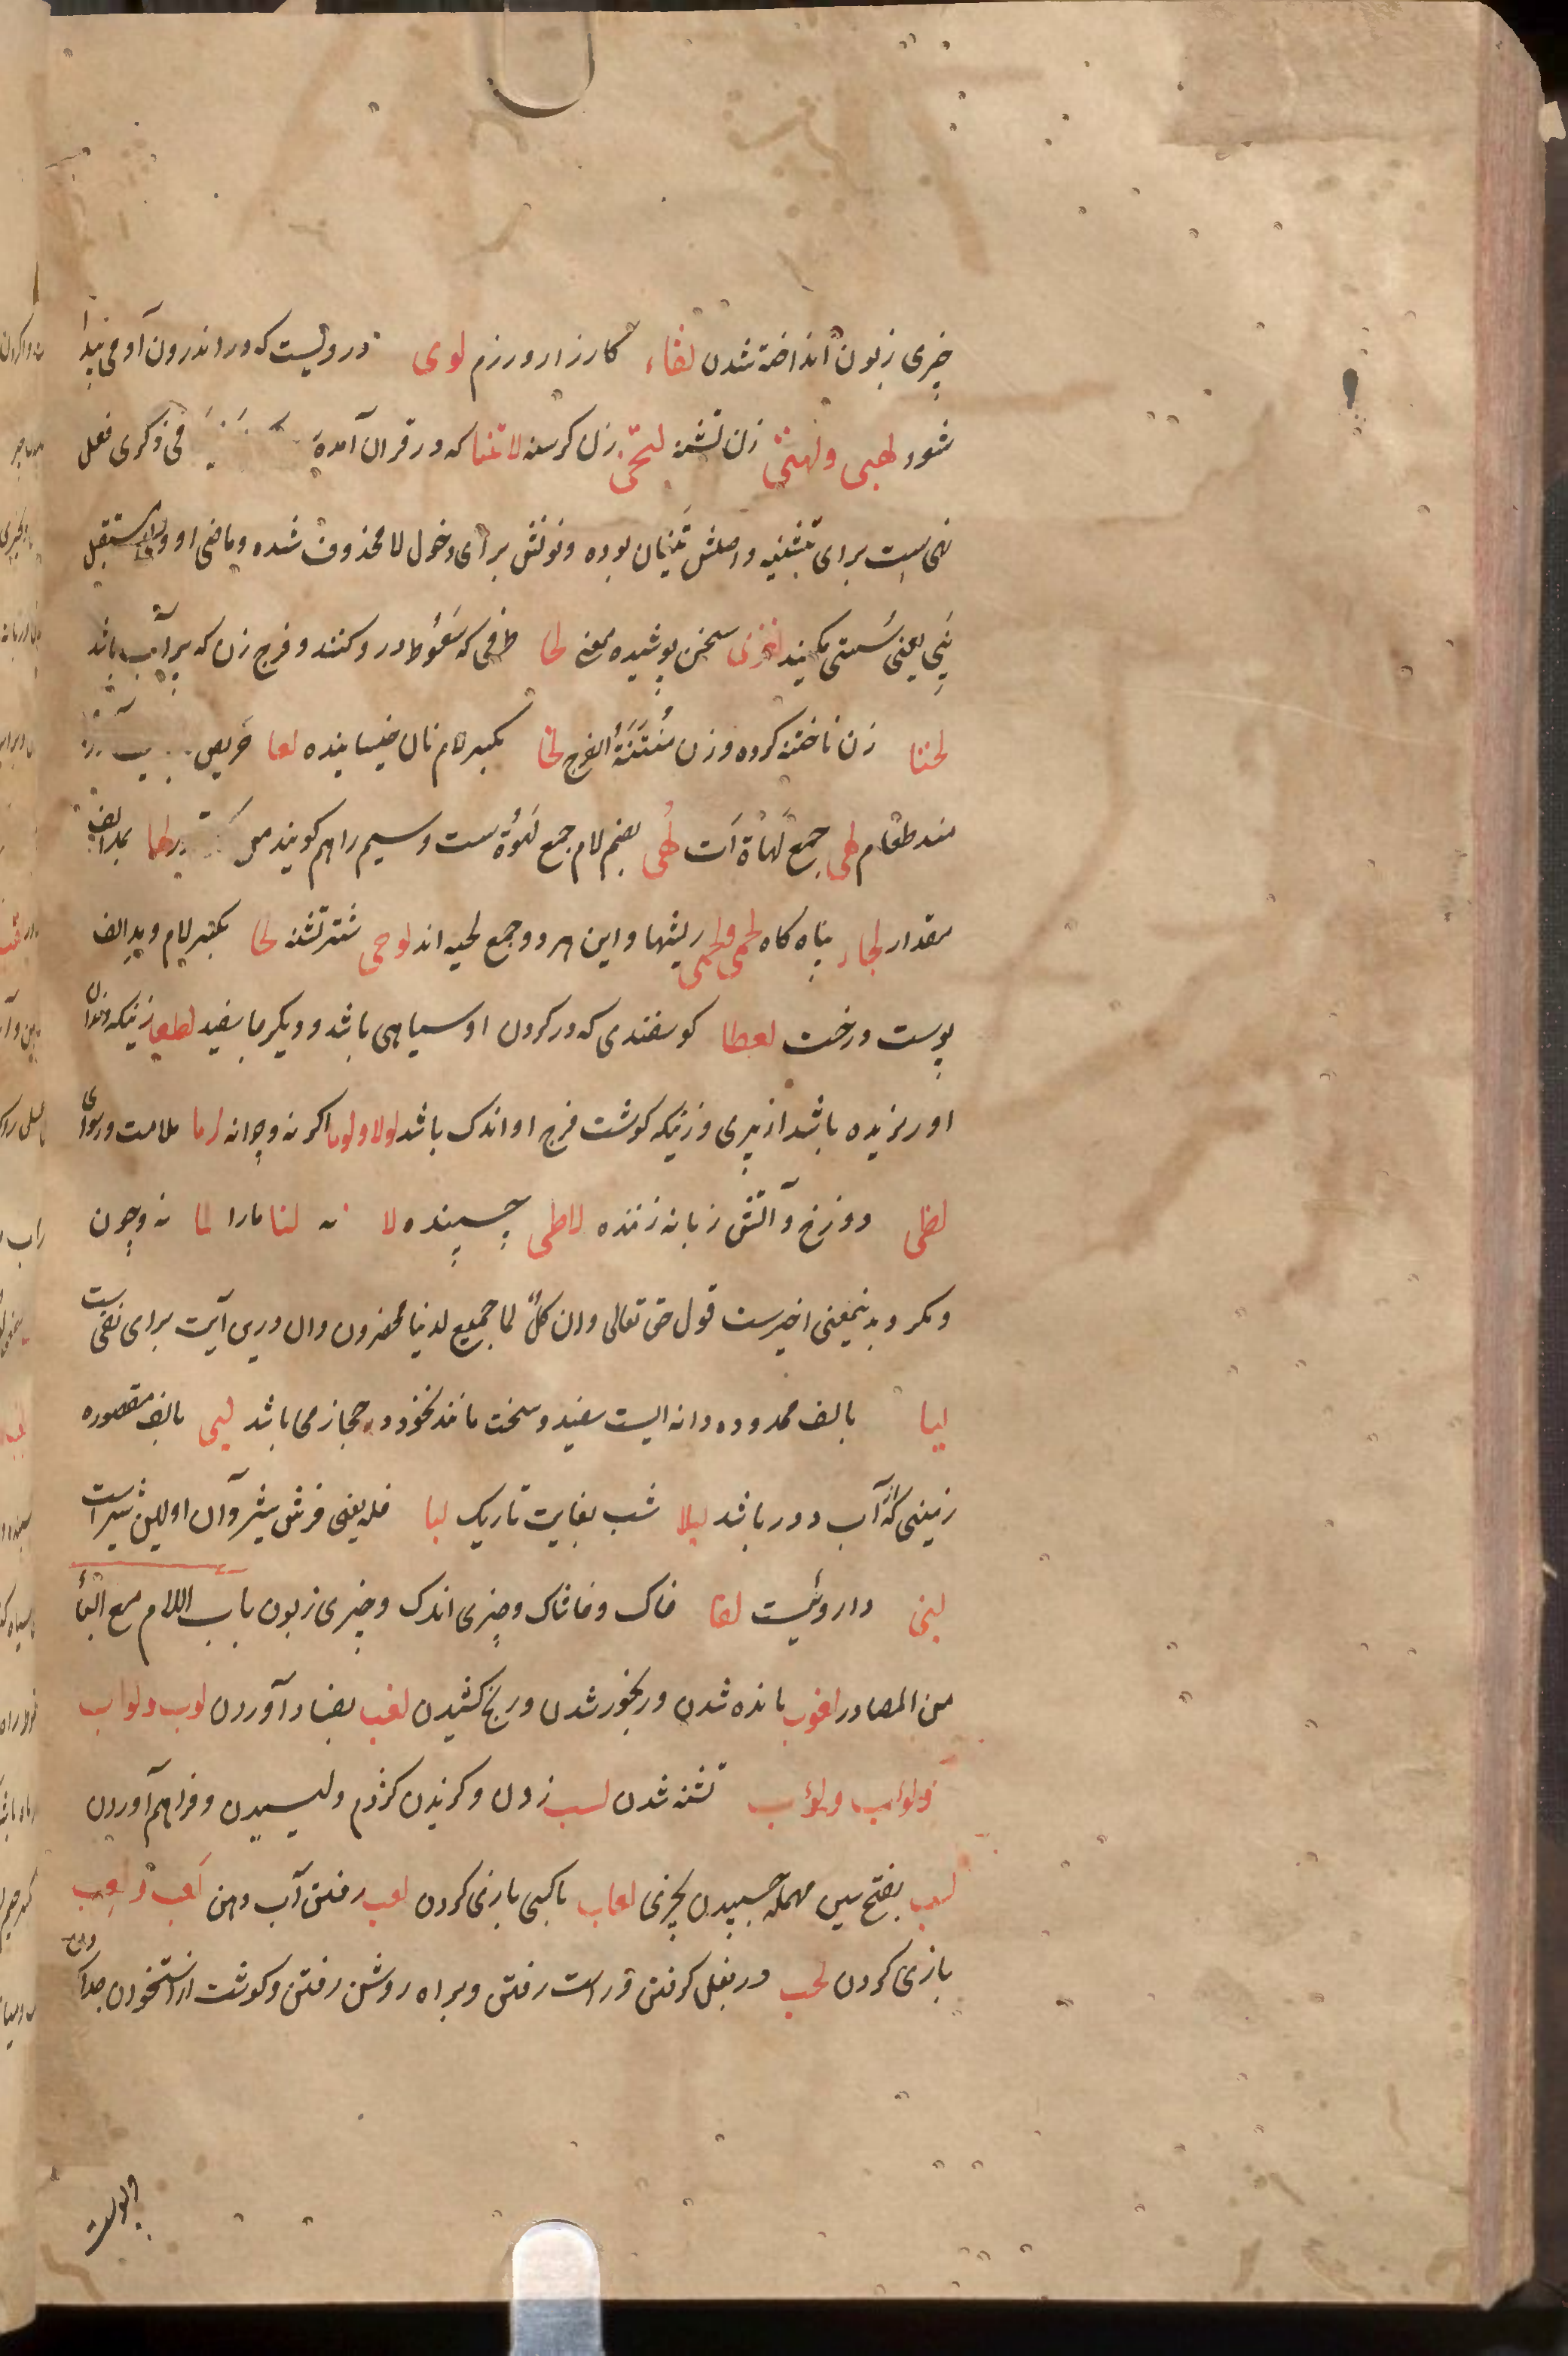 چیزی زبون انداخته شدن لقاء کارزار و رزم لوی دردیست که در اندرون آدمی پیدا
شود لهبی ولهثی زن تشنه لتحی زن کرسنه لاتنیا که در قران آمده فی ذکری فعل
نهی است برای تثنیه و اصلش تنیان بوده و نونش برای دخول لا محذوف شده و ماضی او ونا مستقبل
ینی یعنی سستی مکنید لغزی سخن پوشیده معنی لخا ظرفی که سعوط در و کنند و فرج زن که پرآب باشد
لخنا زن ناختنه کرده و زن منتنة الفرج لخا بکسر لام نان خیسانیده لعا حریص
مند طعام لهی جمع لهاة است لهی بضم لام جمع لهوة ست و سیم را هم کویند لها بمد الف
مقدار لجاء پناه کاه لحی ولحی ریشها و این هر دو جمع لحیه اند لوحی شتر تشنه لحا بکسر لام و مد الف
پوست درخت لعطا کوسفندی که در کردن او سیاهی باشد و دیکر جا سفید لطعا زنیکه دندان
او ریزیده باشد از پیری و زنیکه کوشت فرج او اندک باشد لولا ولوما اکر نه و چرا نه لوما ملامت و رسوای
لظی دوزخ و آتش زبانه زننده لاطی چسپنده لا نه لنا مارا لما نه و چون
و مکر و بدینمعنی اخیرست قول حق تعالی وان کل لما جمیع لدینا محضرون وان درین آیت برای نفی ست
لیا بالف ممدوده دانه ایست سفید و سخت مانند نخود در حجاز می باشد لیی بالف مقصوره
زمینی که از آب دور باشد لیلا شب بغایت تاریک لبا فله یعنی فرش شیر و آن اولین شیر است
لبنی داروئیست لقا خاک و خاشاک و چیزی اندک و چیزی زبون باب اللام مع البأ
من المصادر لغوب مانده شدن و رنجور شدن و رنج کشیدن لغب بفساد آوردن لوب ولواب
ولوأب ولؤب تشنه شدن لسب زدن و کزیدن کژدم و لیسیدن و فراهم آوردن
لسب بفتح سین مهمله چسپیدن بچیزی لعاب با کسی بازی کردن لعب رفتن آب دهن لعب ولعب
بازی کردن لحب در بغل کرفتن و راست رفتن و براه روشن رفتن و کوشت از استخوان جدا کردن